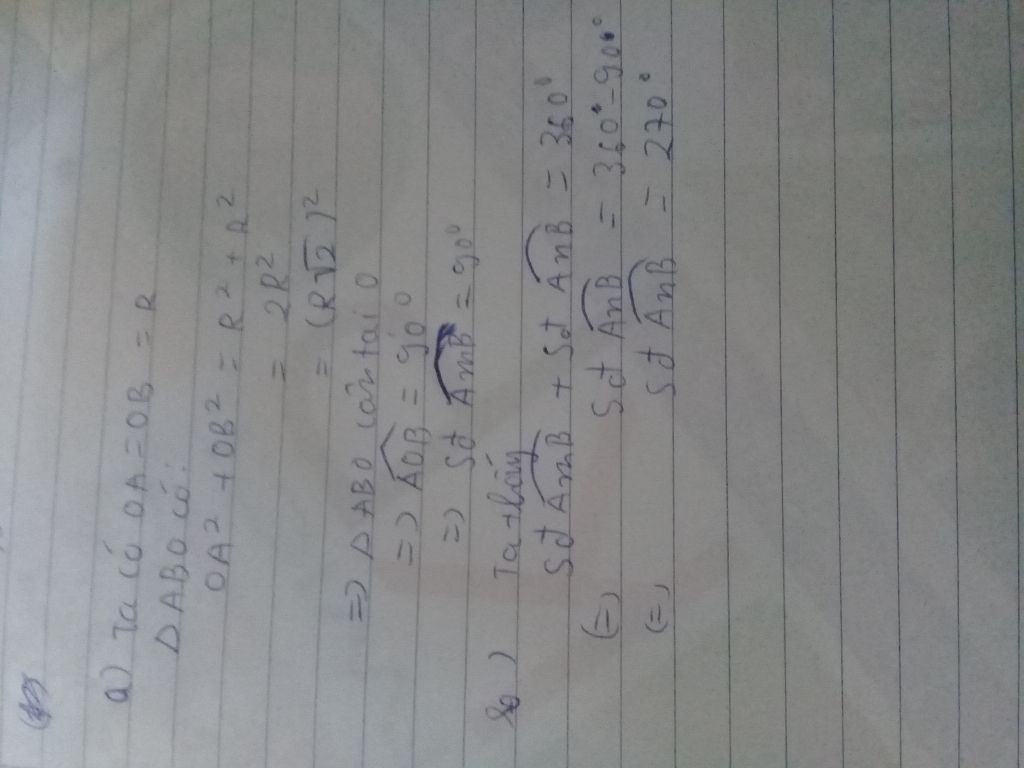 a) Ta có OA = OB = R
Δ ABO có:
OA² + OB² = R² + R²
= 2R²
= (R√2)²
=> Δ ABO cân tại O
=> AOB = 90°
=> Sđ AmB = 90°
b) Ta thấy
Sđ AmB + Sđ AnB = 360°
(=) Sđ AnB = 360° - 90°
(=) Sđ AnB = 270°